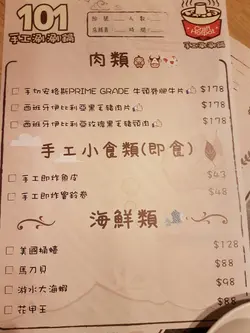 101
手工涮涮鍋
手工涮涮鍋
肉類
手切安格斯PRIME GRADE 牛頸脊腿牛片 $178
西班牙伊比利亞黑毛豬肉片 $178
西班牙伊比利亞玫瑰黑毛豬頸肉 $178
手工小食類(即食)
手工炸魚皮 $43
手工炸響鈴卷 $48
海鮮類
美國桶蠔 $128
馬刀貝 $88
游水大海蝦 $98
花甲王 $88